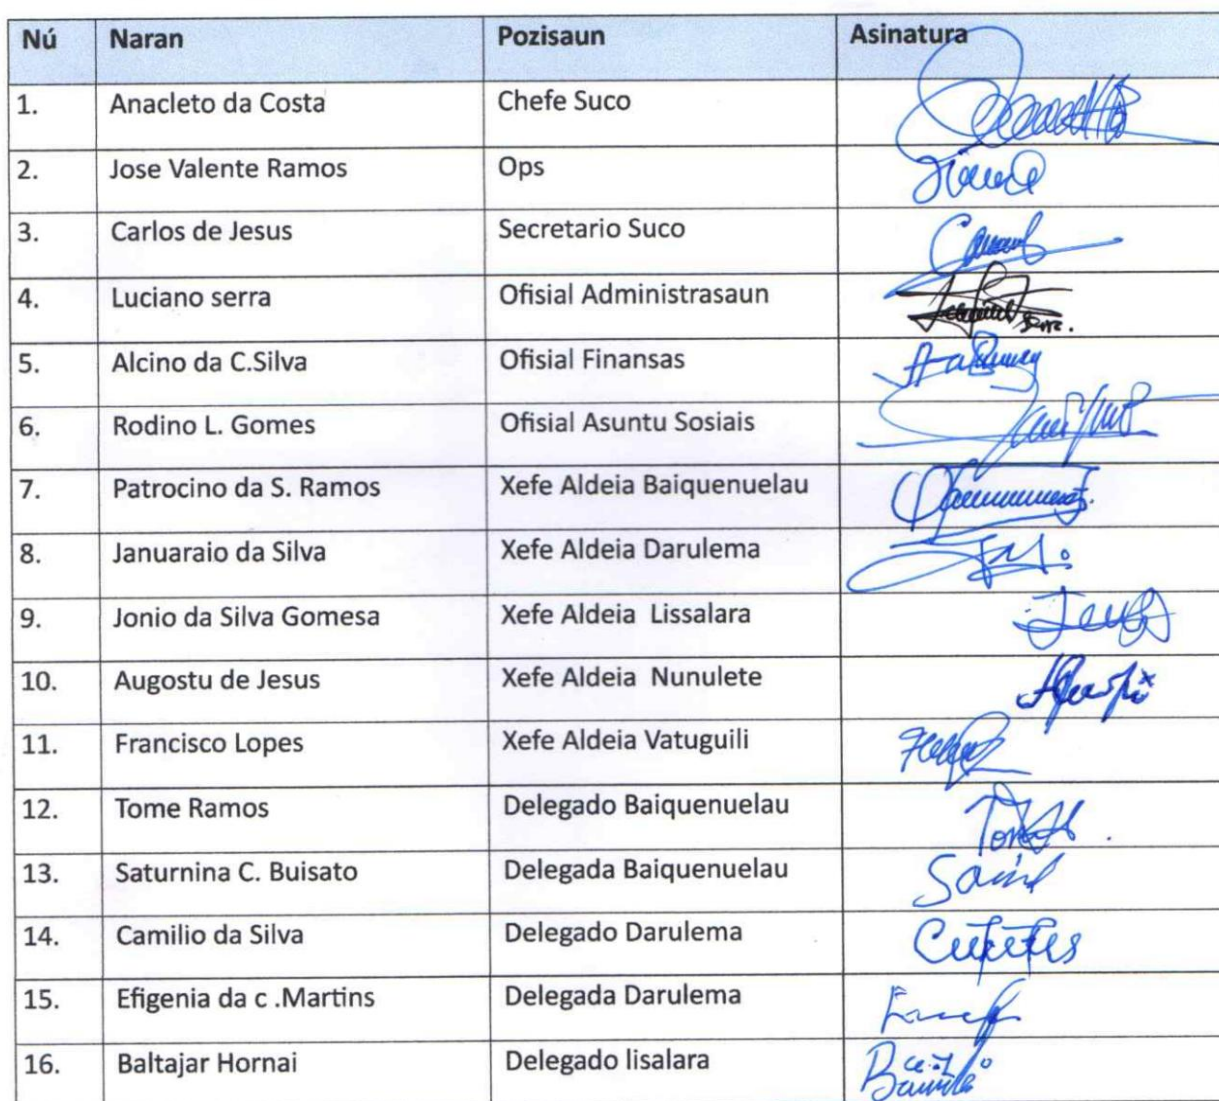 Nú Naran Pozisaun Asinatura
1. Anacleto da Costa Chefe Suco
2. Jose Valente Ramos Ops
3. Carlos de Jesus Secretario Suco
4. Luciano serra Ofisial Administrasaun
5. Alcino da C.Silva Ofisial Finansas
6. Rodino L. Gomes Ofisial Asuntu Sosiais
7. Patrocino da S. Ramos Xefe Aldeia Baiquenuelau
8. Januaraio da Silva Xefe Aldeia Darulema
9. Jonio da Silva Gomesa Xefe Aldeia Lissalara
10. Augostu de Jesus Xefe Aldeia Nunulete
11. Francisco Lopes Xefe Aldeia Vatuguili
12. Tome Ramos Delegado Baiquenuelau
13. Saturnina C. Buisato Delegada Baiquenuelau
14. Camilio da Silva Delegado Darulema
15. Efigenia da c .Martins Delegada Darulema
16. Baltajar Hornai Delegado lisalara